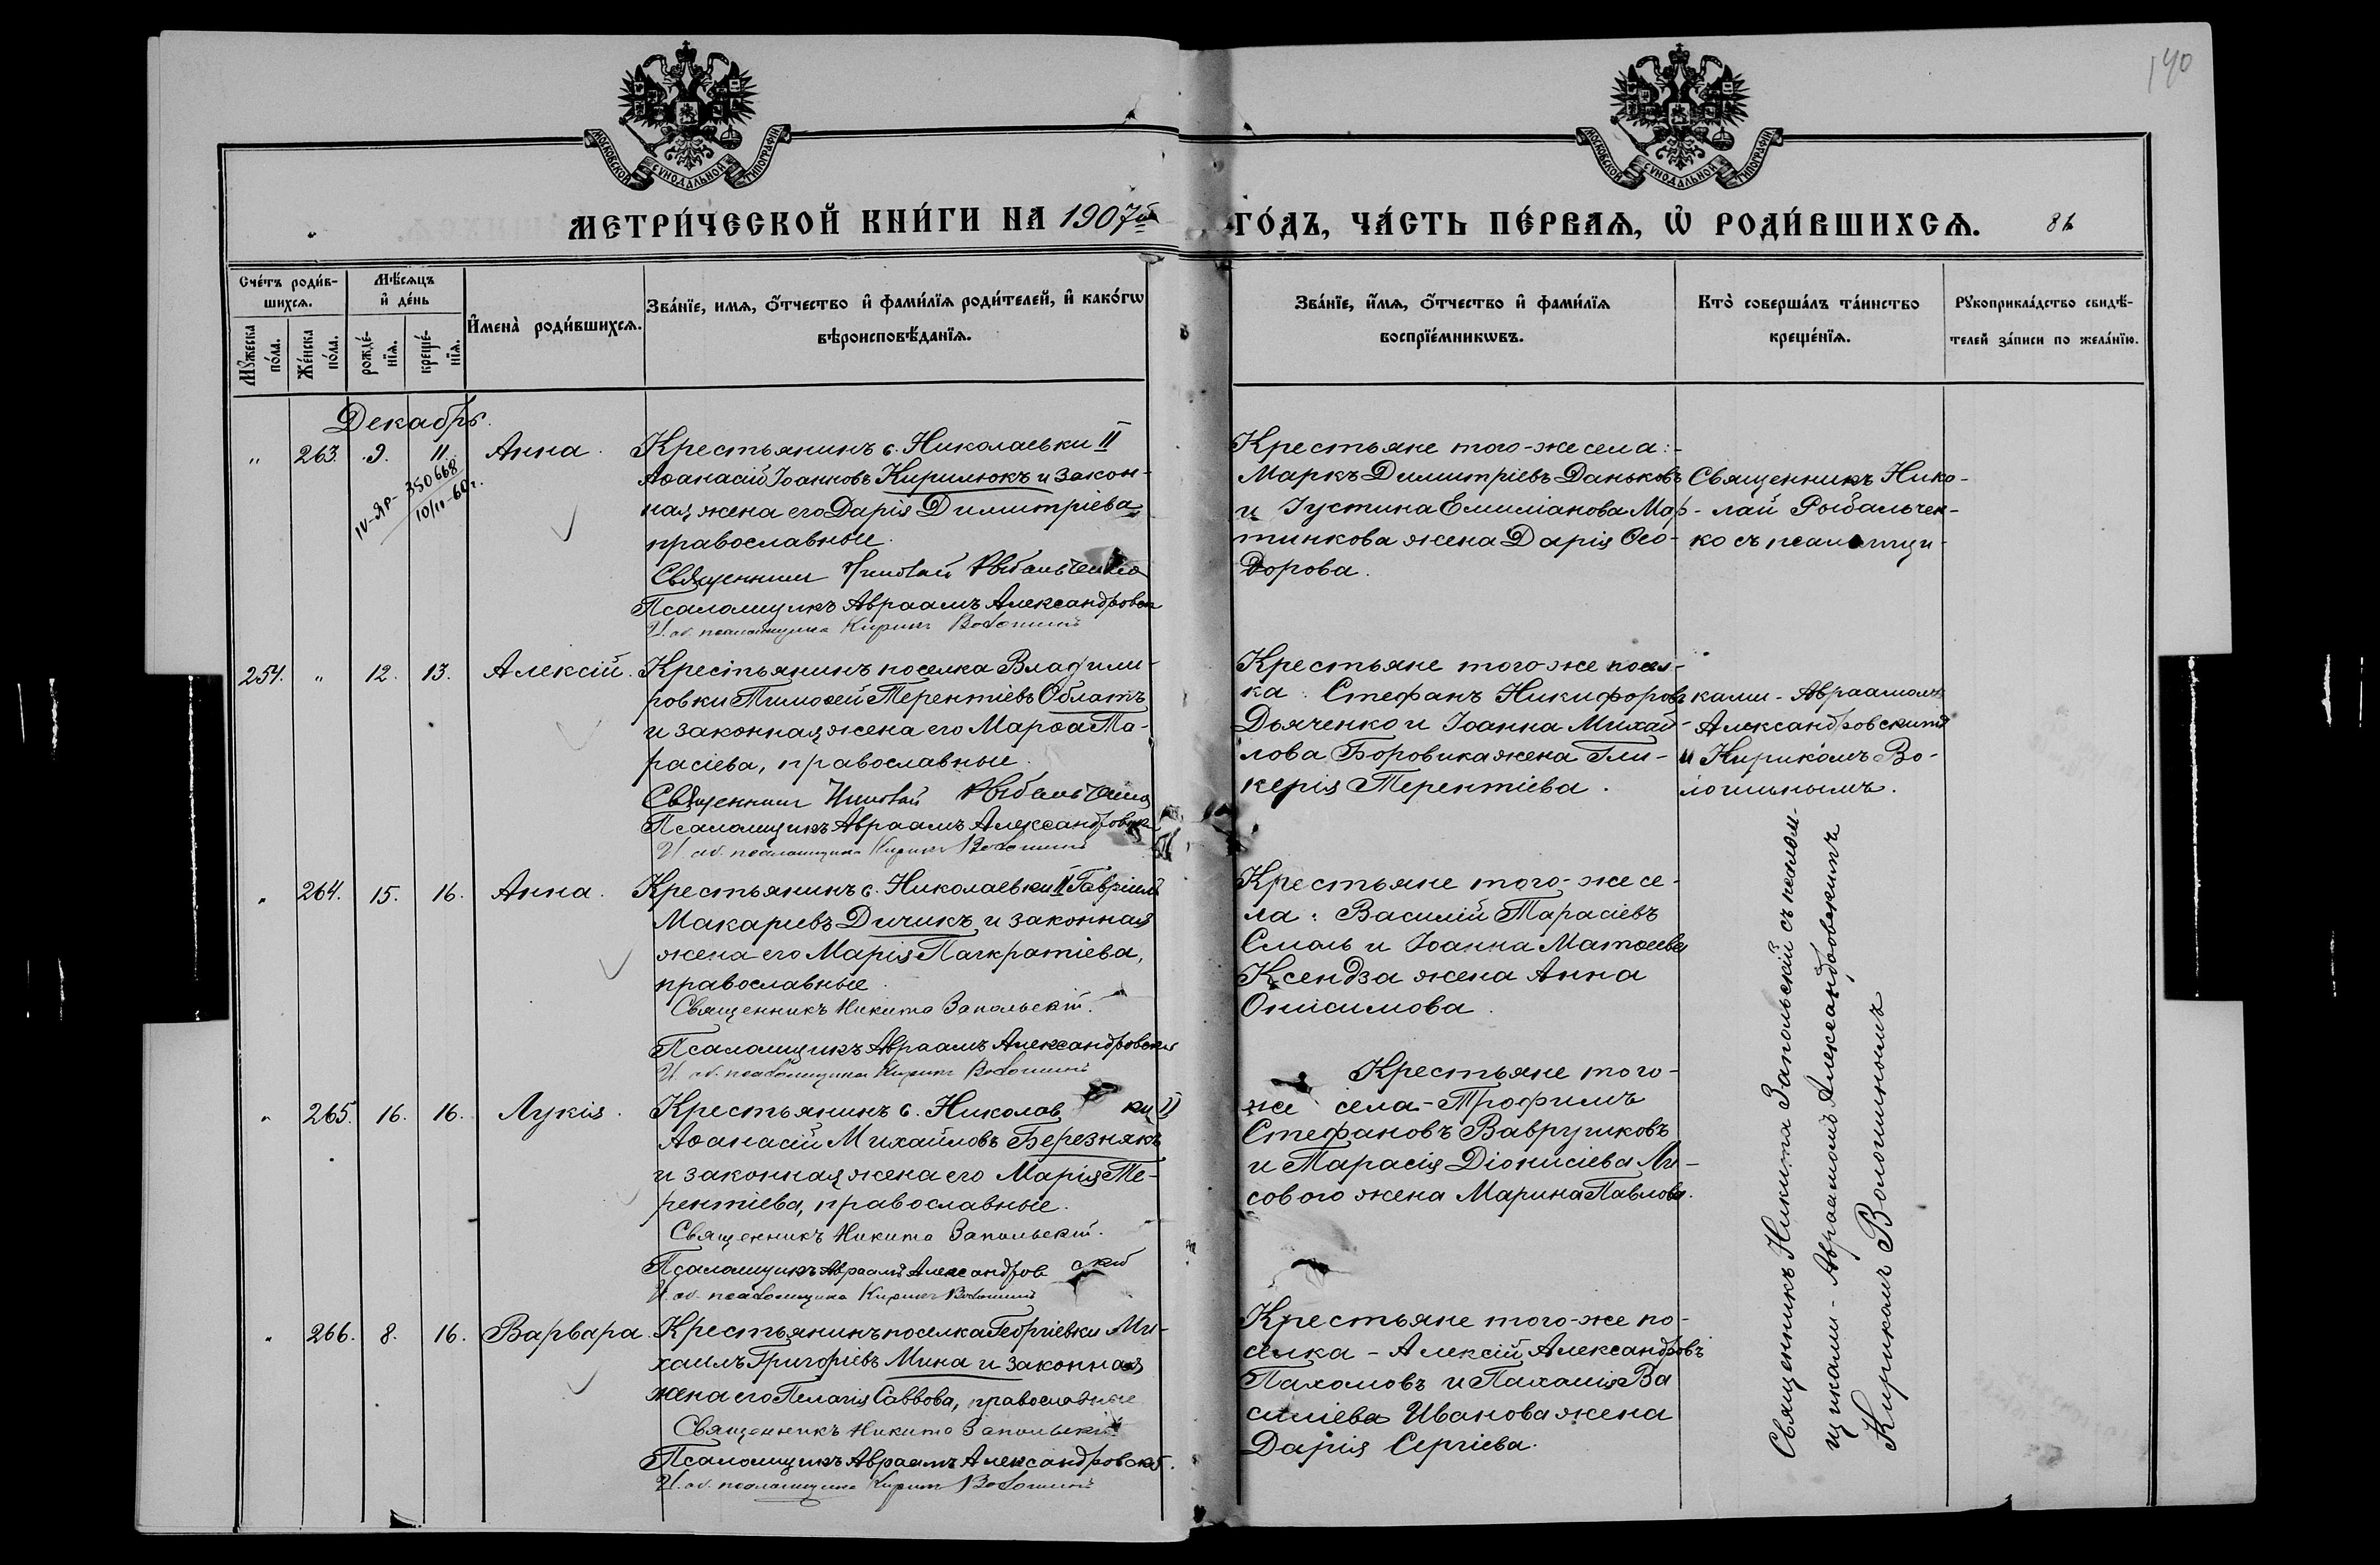 140
МОСКОВСКОЙ СѴНОДАЛЬНОЙ ТИПОГРАФІИ
МОСКОВСКОЙ СѴНОДАЛЬНОЙ ТИПОГРАФІИ
МЕТРИ́ЧЕСКОЙ КНИ́ГИ НА 1907й
ГО́ДЪ, ЧА́СТЬ ПЕ́РВАѦ, Ѡ҆ РОДИ́ВШИХСѦ.
Сче́тъ роди́в-
шихсѧ.
Мꙋ́жеска
по́ла.
Же́нска
по́ла.
Мѣ́сѧцъ
и҆ де́нь
рожде́-
нїѧ.
креще́-
нїѧ.
И҆мена̀ роди́вшихсѧ.
Зва́нїе, имѧ, ѻ҆́тчество и҆ фами́лїѧ роди́телей, и҆ како́гѡ
вѣроисповѣ́данїѧ.
Зва́нїе, и҆́мѧ, ѻ҆́тчество и҆ фами́лїѧ
воспрїе́мникѡвъ.
Кто̀ соверша́лъ та́инство
креще́нїѧ.
Рꙋкоприкла́дство свидѣ́-
телей за́писи по жела́нїю.
Декабрь.
„ 263. 9. 11. Анна.
IV-ЯР- 350668
10/II-60г.
Крестьянинъ с. Николаевки II
Аѳанасій Іоанновъ Кирилюкъ и закон-
ная жена его Дарія Димитріева
православные.
Священник Николай Рыбальченко
Псаломщикъ Авраамъ Александровск
И. об. псаломщика Кирикъ Волошинъ
Крестьяне того-же села:-
Маркъ Димитріевъ Даньковъ
и Іустина Емиліанова Мар-
тинкова жена Дарія Ѳео-
дорова.
Священникъ Нико-
лай Рыбальчен-
ко съ псаломщи-
254. „ 12. 13. Алексій.
Крестьянинъ поселка Владими-
ровки Тимоѳей Терентіевъ Облатъ
и законная жена его Марѳа Та-
расіева, православные.
Священник Николай Рыбальченко
Псаломщикъ Авраамъ Александровск
И. об. псаломщика Кирикъ Волошинъ
Крестьяне того же посел-
ка: Стефанъ Никифоровъ
Дьяченко и Іоанна Михай-
лова Боровика жена Гли-
керія Терентіева.
ками - Авраамомъ
Александровскимъ
и Кирикомъ Во-
лошинымъ.
„ 264. 15. 16. Анна.
Крестьянинъ с. Николаевки II Гавріилъ
Макариевъ Дичикъ и законная
жена его Марія Панкратіева,
православные.
Священникъ Никита Запольскій.
Псаломщикъ Авраамъ Александровскій
И. об. псаломщика Кирикъ Волошинъ
Крестьяне того-же се-
ла: Василій Тарасіевъ
Смоль и Іоанна Матѳеева
Ксендза жена Анна
Онисимова.
„ 265. 16. 16. Лукія.
Крестьянинъ с. Николаев ки II
Аѳанасій Михайловъ Березнякъ
и законная жена его Марія Те-
рентіева, православные.
Священникъ Никита Запольскій.
Псаломщикъ Авраамъ Александров скій
И. об. псаломщика Кирикъ Волошинъ
Крестьяне того-
же села - Трофимъ
Стефановъ Вавруниковъ
и Тарасія Діонисіева Ли-
сового жена Марина Павлова.
„ 266. 8. 16. Варвара.
Крестьянинъ поселка Георгіевки Ми-
хаилъ Григоріевъ Мина и законная
жена его Пелагія Саввова, православные
Священникъ Никита Запольскій
Псаломщикъ Авраамъ Александровскій.
И. об. псаломщика Кирикъ Волошинъ
Крестьяне того-же по-
селка - Алексій Александровъ
Пахомовъ и Пахомія Ва
силіева Иванова жена
Дарія Сергіева.
Священникъ Никита Запольскій съ псалом-
щиками - Авраамомъ Александровскимъ
Кирикомъ Волошинымъ